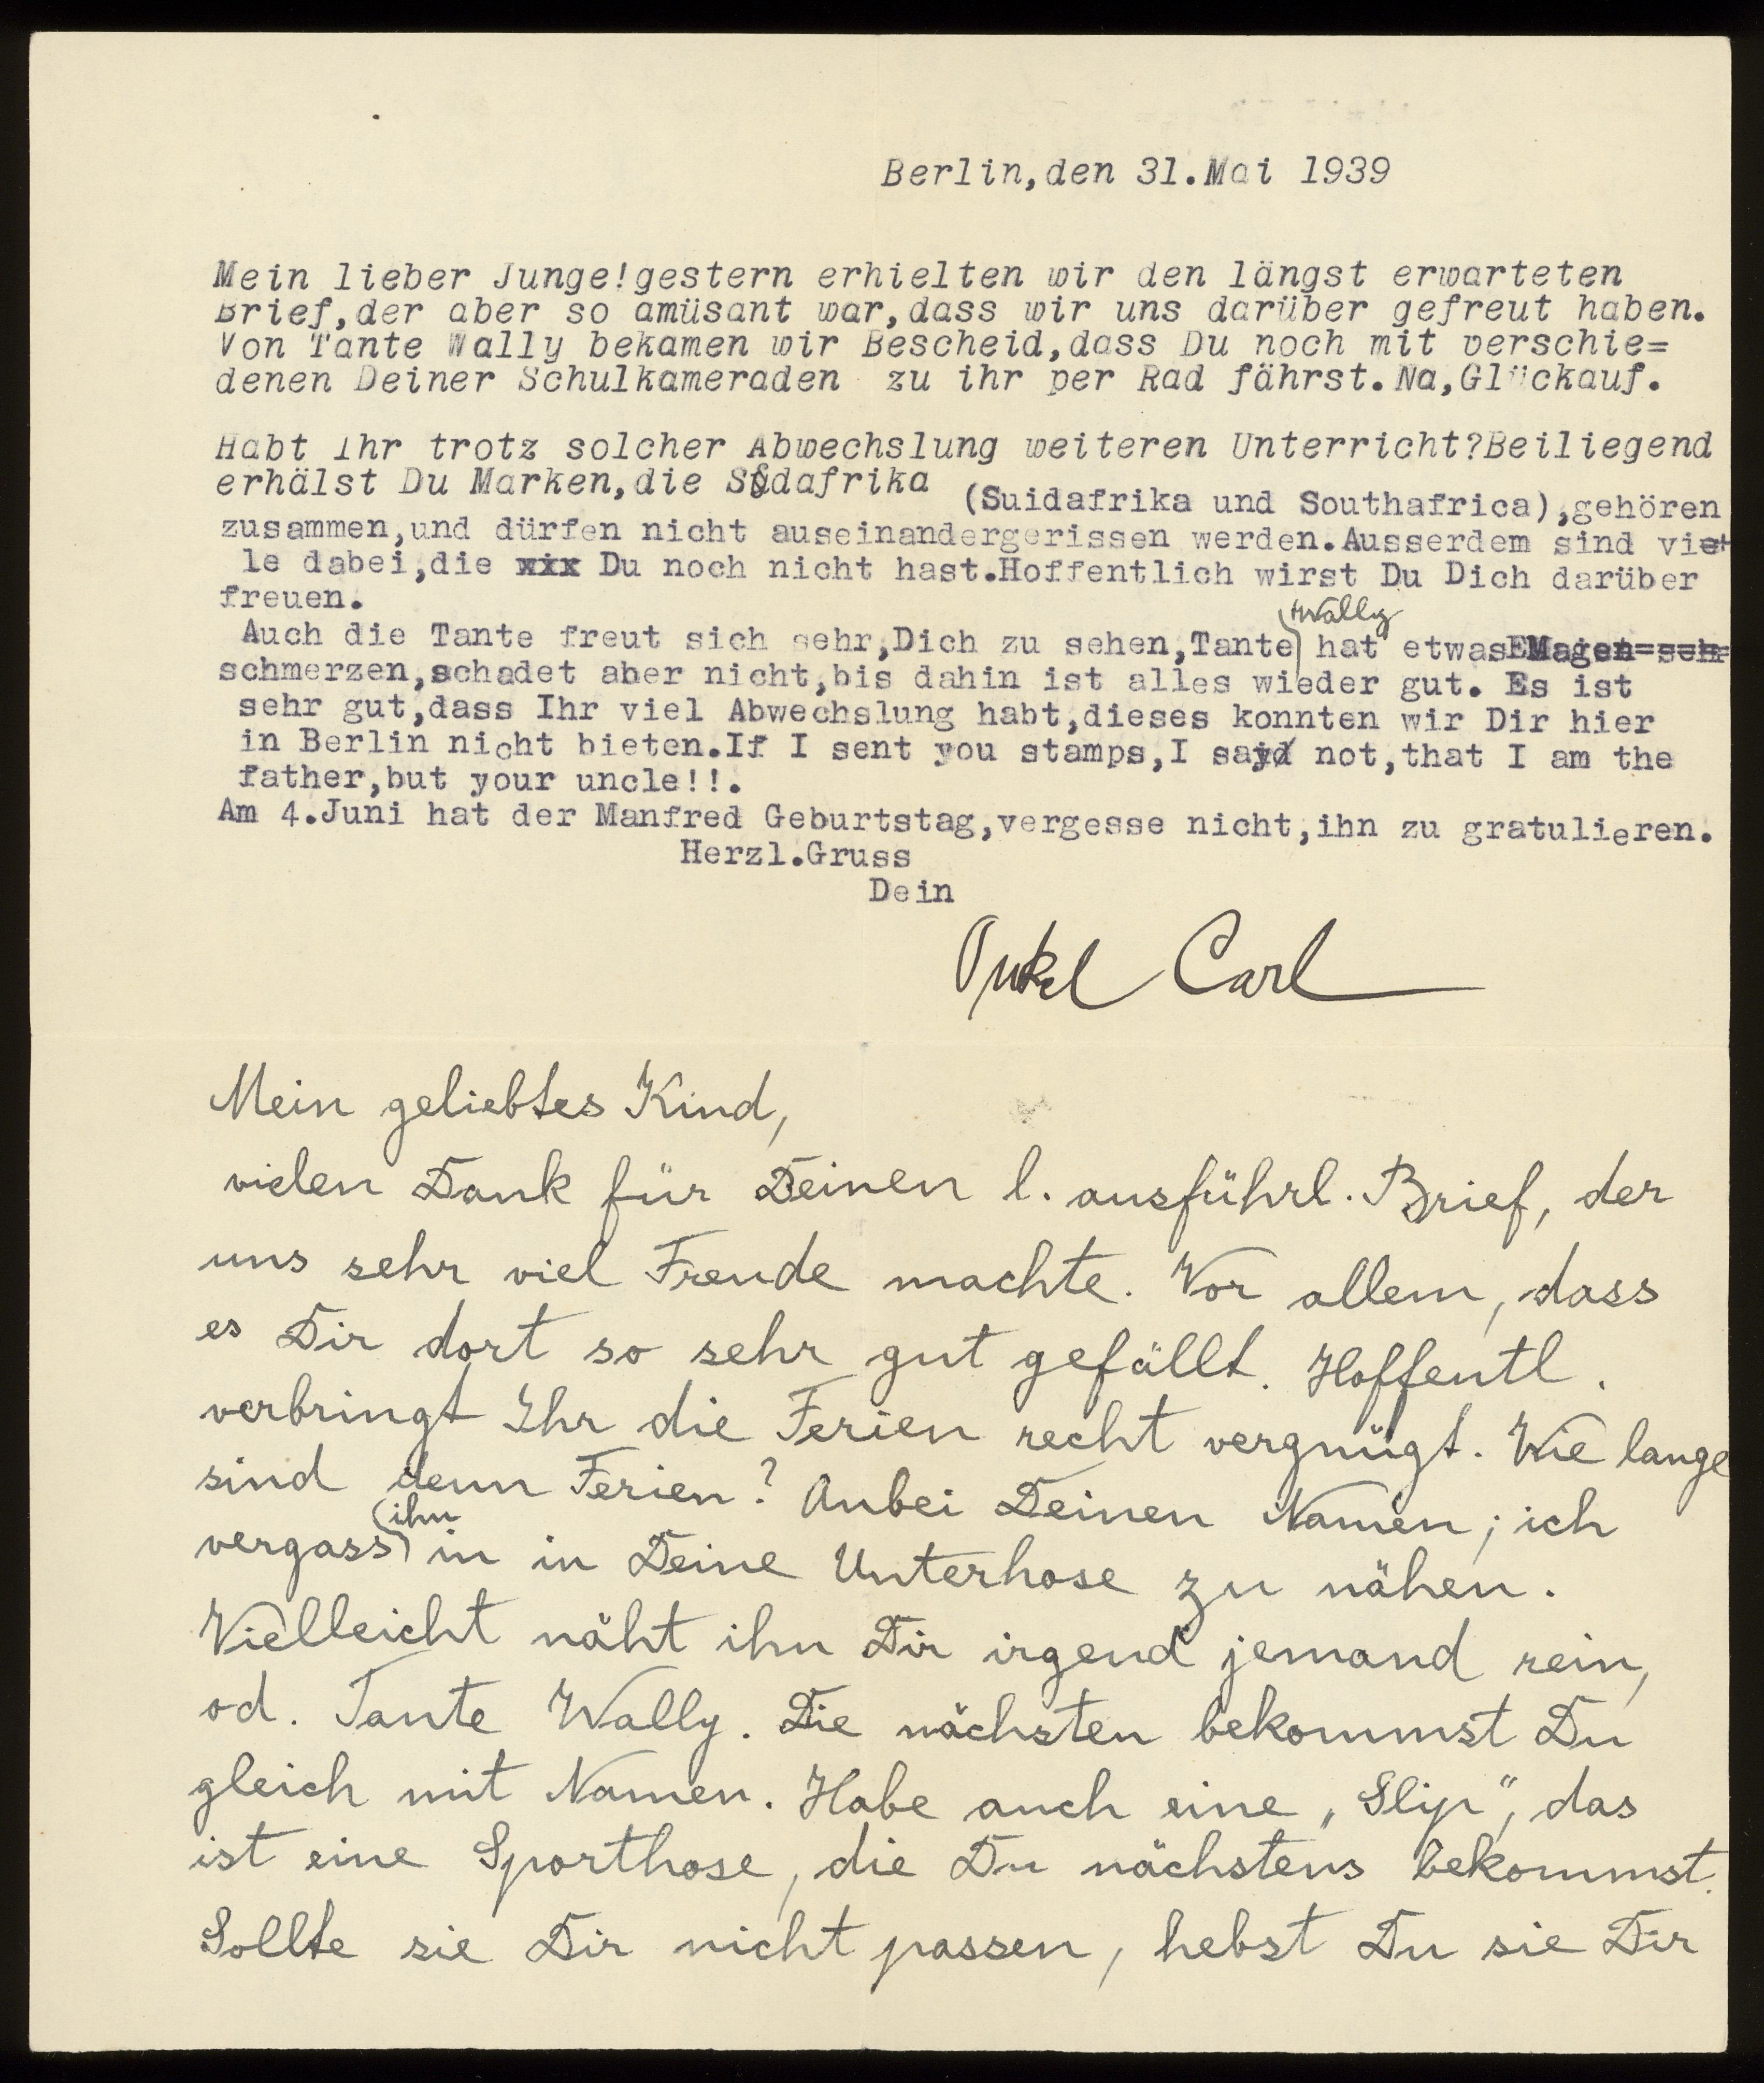 Berlin,den 31.Mai 1939
Mein lieber Junge!gestern erhielten wir den längst erwarteten
Brief,der aber so amüsant war,dass wir uns darüber gefreut haben.
Von Tante Wally bekamen wir Bescheid,dass Du noch mit verschie=
denen Deiner Schulkameraden zu ihr per Rad fährst.Na,Glückauf.
Habt Ihr trotz solcher Abwechslung weiteren Unterricht?Beiliegend
erhälst Du Marken,die Südafrika (Suidafrika und Southafrica),gehören
zusammen,und dürfen nicht auseinandergerissen werden.Ausserdem sind vie
le dabei,die xix Du noch nicht hast.Hoffentlich wirst Du Dich darüber
freuen.
Auch die Tante freut sich sehr,Dich zu sehen,Tante Wally hat etwas Magen=sch=
schmerzen,schadet aber nicht,bis dahin ist alles wieder gut. Es ist
sehr gut,dass Ihr viel Abwechslung habt,dieses konnten wir Dir hier
in Berlin nicht bieten.If I sent you stamps,I say not,that I am the
father,but your uncle!!.
Am 4.Juni hat der Manfred Geburtstag,vergesse nicht,ihn zu gratulieren.
Herzl.Gruss
Dein
Onkel Carl
Mein geliebtes Kind,
vielen Dank für Deinen l. ausführl. Brief, der
uns sehr viel Freude machte. Vor allem, dass
es Dir dort so sehr gut gefällt. Hoffentl.
verbringt Ihr die Ferien recht vergnügt. Wie lange
sind denn Ferien? Anbei Deinen Namen; ich
vergass ihn in in Deine Unterhose zu nähen.
Vielleicht näht ihn Dir irgend jemand rein,
od. Tante Wally. Die nächsten bekommst Du
gleich mit Namen. Habe auch eine „Slip", das
ist eine Sporthose, die Du nächstens bekommst.
Sollte sie Dir nicht passen, hebst Du sie Dir